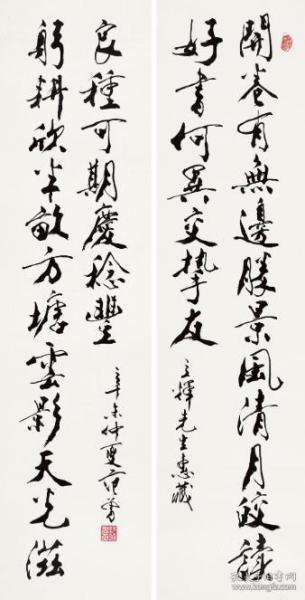 開卷有無邊勝景風清月皎讀
好書何異交摯友
立輝先生惠藏
躬耕欣半畝方塘雲影天光滋
良種可期慶稔豐
辛未仲夏